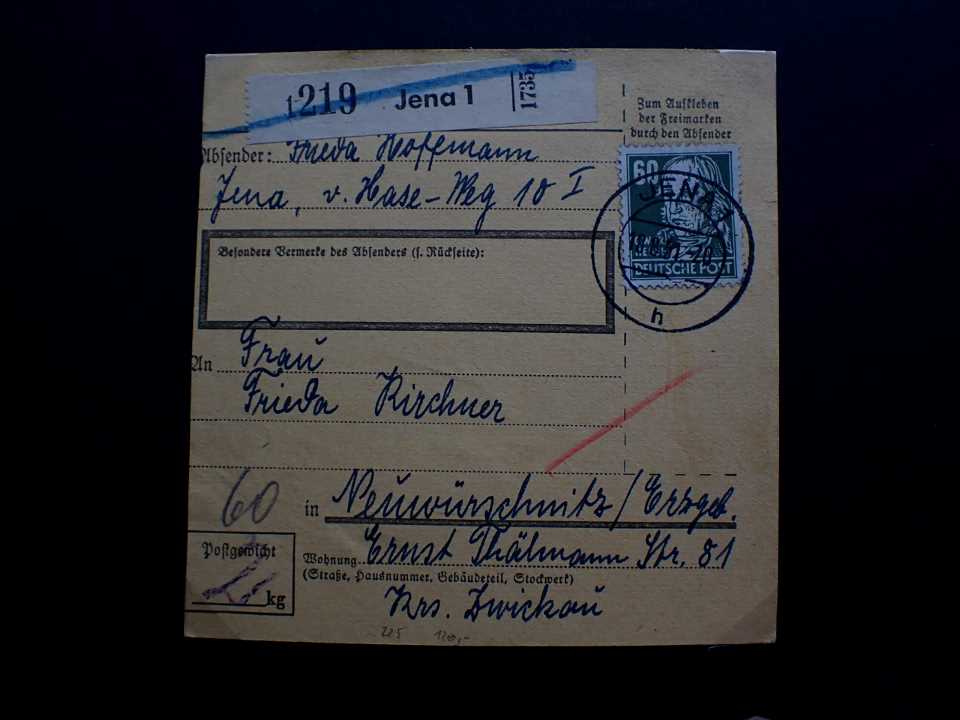 1219 Jena 1 1735
Zum Aufkleben
der Freimarken
durch den Absender
Absender: Frieda Hoffmann
Jena, v. Hase-Weg 10 I
60
DEUTSCHE POST
JENA 1
h
Besondere Vermerke des Absenders (s. Rückseite):
An Frau
Frieda Kirchner
60
in Neuwürschnitz/Erzgeb.
Postgewicht
kg
Wohnung Ernst Thälmann Str. 81
(Straße, Hausnummer, Gebäudeteil, Stockwerk)
Krs. Zwickau
225 120,-